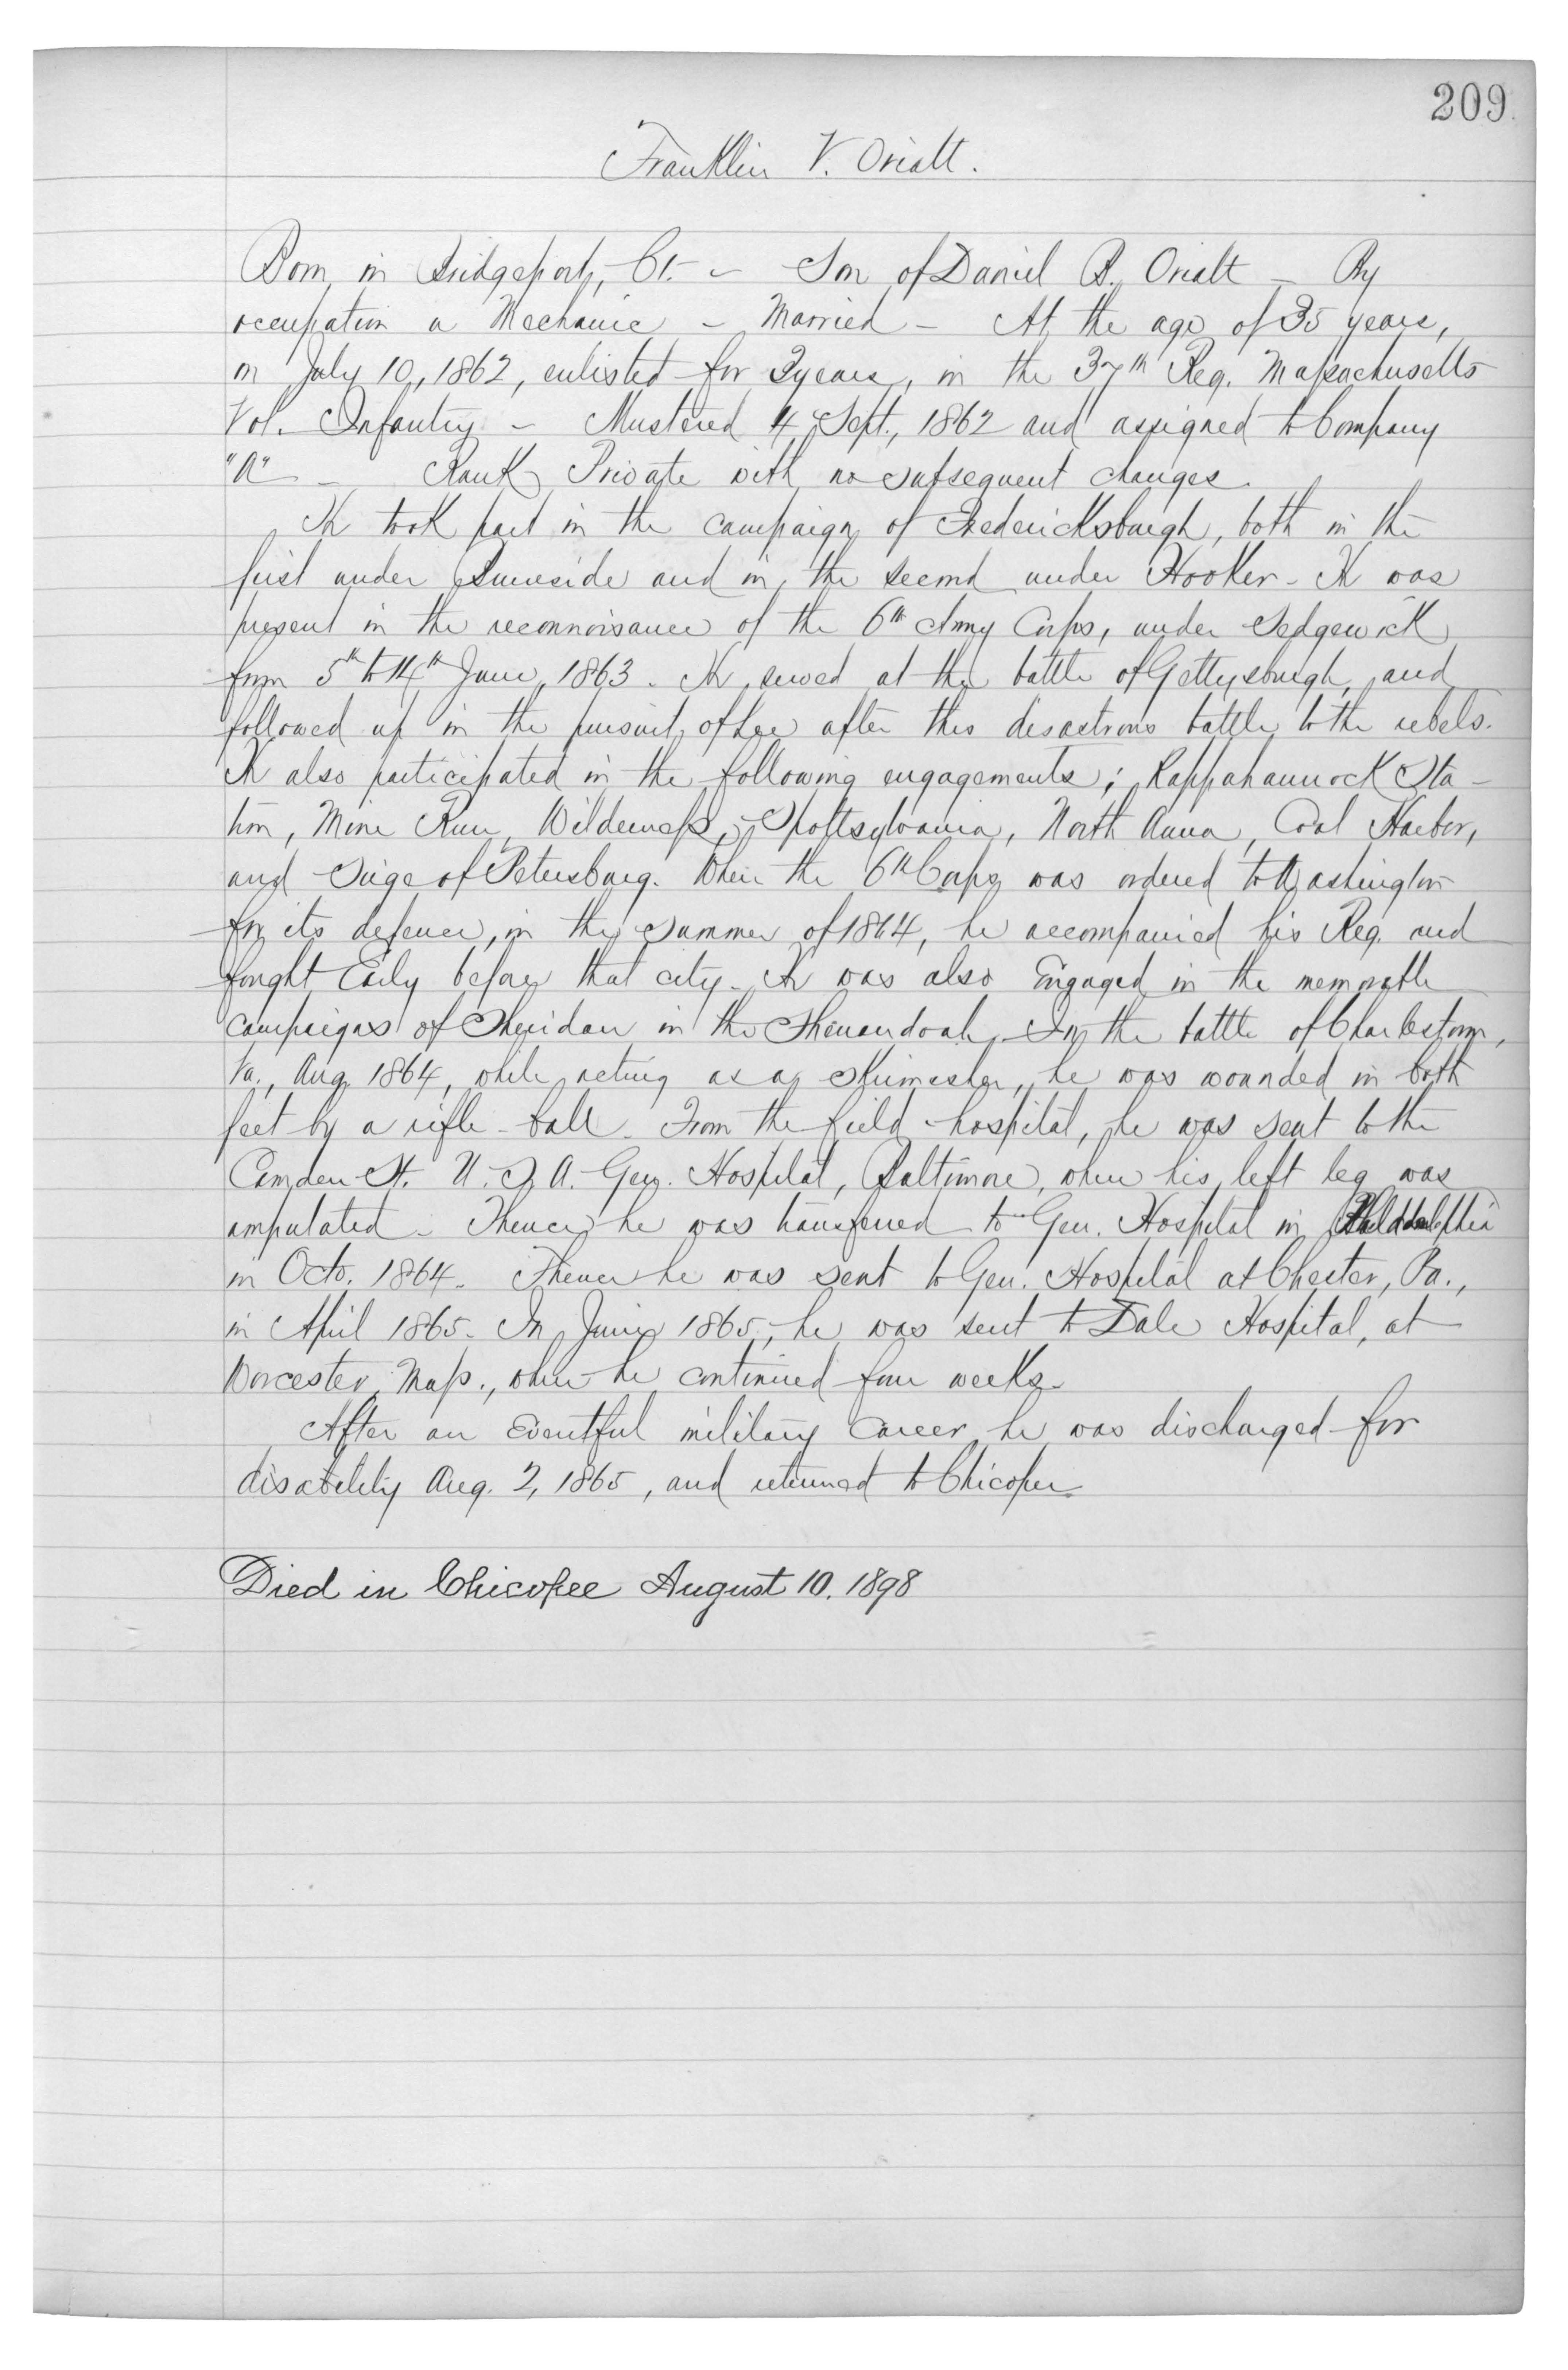 209
Franklin V. Oviatt.
Born in Bridgeport, Ct. - Son of Daniel B. Oviatt - By
occupation a Mechanic - Married - At the age of 35 years,
on July 10, 1862, enlisted for 3 years, in the 37th Reg. Massachusetts
Vol. Infantry - Mustered 4 Sept., 1862 and assigned to Company
"A" - Rank Private with no subsequent changes.
He took part in the campaign of Fredericksburgh, both in the
first under Burnside and in the second under Hooker - He was
present in the reconnoisance of the 6th Army Corps, under Sedgewick
from 5th to 14th June, 1863. He served at the battle of Gettysburgh, and
followed up in the pursuit of Lee after this disastrous battle to the rebels.
He also participated in the following engagements; Rappahannock Sta-
tion, Mine Run, Wilderness, Spottsylvania, North Anna, Coal Harbor,
and Siege of Petersburg. When the 6th Corps was ordered to Washington
for its defence, in the summer of 1864, he accompanied his Reg. and
fought Early before that city. He was also Engaged in the memorable
campaigns of Sheridan in the Shenandoah. In the battle of Charlestown,
Va., Aug. 1864, while acting as a skirmisher, he was wounded in both
feet by a rifle-ball. From the field-hospital, he was sent to the
Camden St. U.S.A. Gen. Hospital, Baltimore, where his left leg was
amputated. Thence he was transferred to Gen. Hospital in Philadelphia
in Octo. 1864. Thence he was sent to Gen. Hospital at Chester, Pa.,
in April 1865. In June 1865, he was sent to Dale Hospital, at
Worcester, Mass., where he continued four weeks.
After an Eventful military career he was discharged for
disability Aug. 2, 1865, and returned to Chicopee
Died in Chicopee August 10. 1898